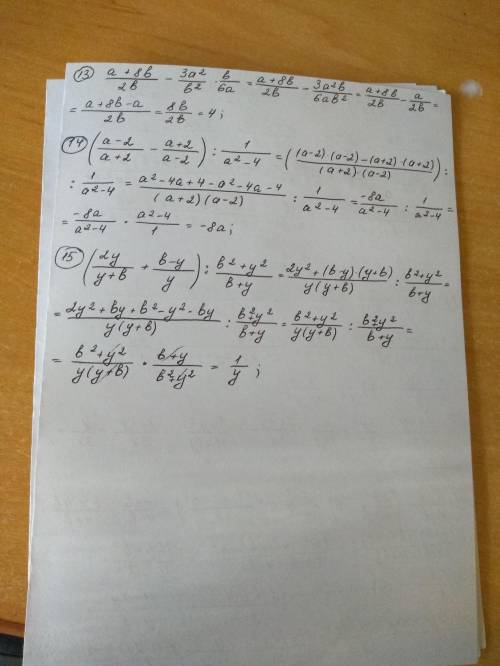 13) (a+8b)/(2b) - (3a²)/(b²) · b/(6a) = (a+8b)/(2b) - (3a²b)/(6ab²) = (a+8b)/(2b) - a/(2b) =
= (a+8b-a)/(2b) = (8b)/(2b) = 4;
14) ((a-2)/(a+2) - (a+2)/(a-2)) : 1/(a²-4) = (((a-2)·(a-2)-(a+2)·(a+2))/((a+2)·(a-2))) :
: 1/(a²-4) = (a²-4a+4-a²-4a-4)/((a+2)(a-2)) : 1/(a²-4) = (-8a)/(a²-4) : 1/(a²-4) =
= (-8a)/(a²-4) · (a²-4)/1 = -8a;
15) ((2y)/(y+b) + (b-y)/y) : (b²+y²)/(b+y) = (2y²+(b-y)·(y+b))/(y(y+b)) : (b²+y²)/(b+y) =
= (2y²+by+b²-y²-by)/(y(y+b)) : (b²+y²)/(b+y) = (b²+y²)/(y(y+b)) : (b²+y²)/(b+y) =
= (b²+y²)/(y(y+b)) · (b+y)/(b²+y²) = 1/y;